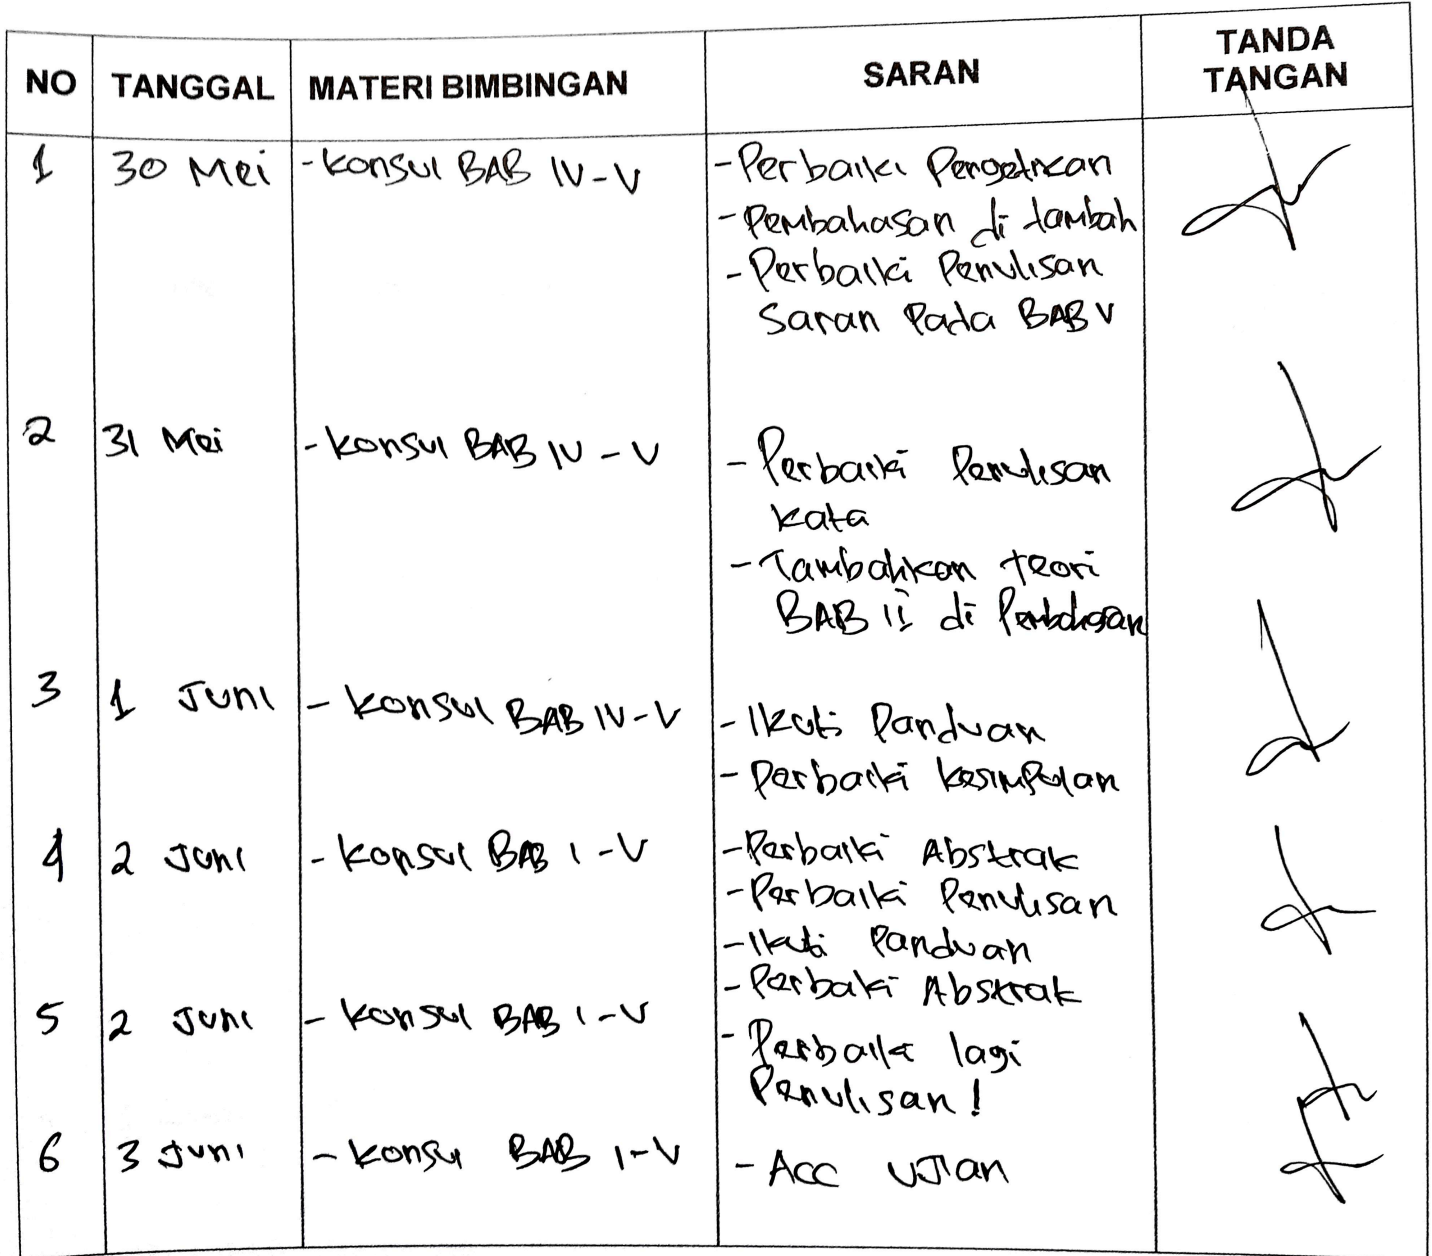 NO TANGGAL MATERI BIMBINGAN SARAN TANDA TANGAN
1 30 Mei - Konsul BAB IV - V - Perbaiki Pengetikan
- Pembahasan di tambah
- Perbaiki Penulisan
Saran Pada BAB V
2 31 Mei - Konsul BAB IV - V - Perbaiki Penulisan
Kata
- Tambahkan teori
BAB II di Pembahasan
3 1 Juni - Konsul BAB IV - V - Ikuti Panduan
- Perbaiki kesimpulan
4 2 Juni - Konsul BAB I - V - Perbaiki Abstrak
- Perbaiki Penulisan
- Ikuti Panduan
- Perbaki Abstrak
5 2 Juni - Konsul BAB I - V - Perbaiki lagi
Penulisan !
6 3 Juni - Konsul BAB I - V - Acc Ujian